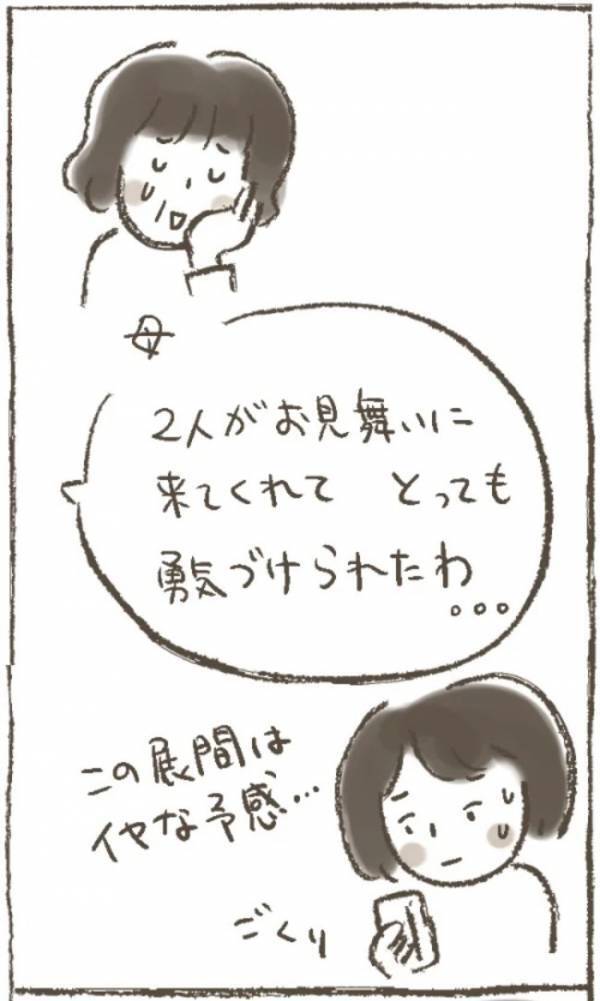 母
2人がお見舞いに
来てくれて とっても
勇気づけられたわ
...
この展間は
イヤな予感...
ごくり